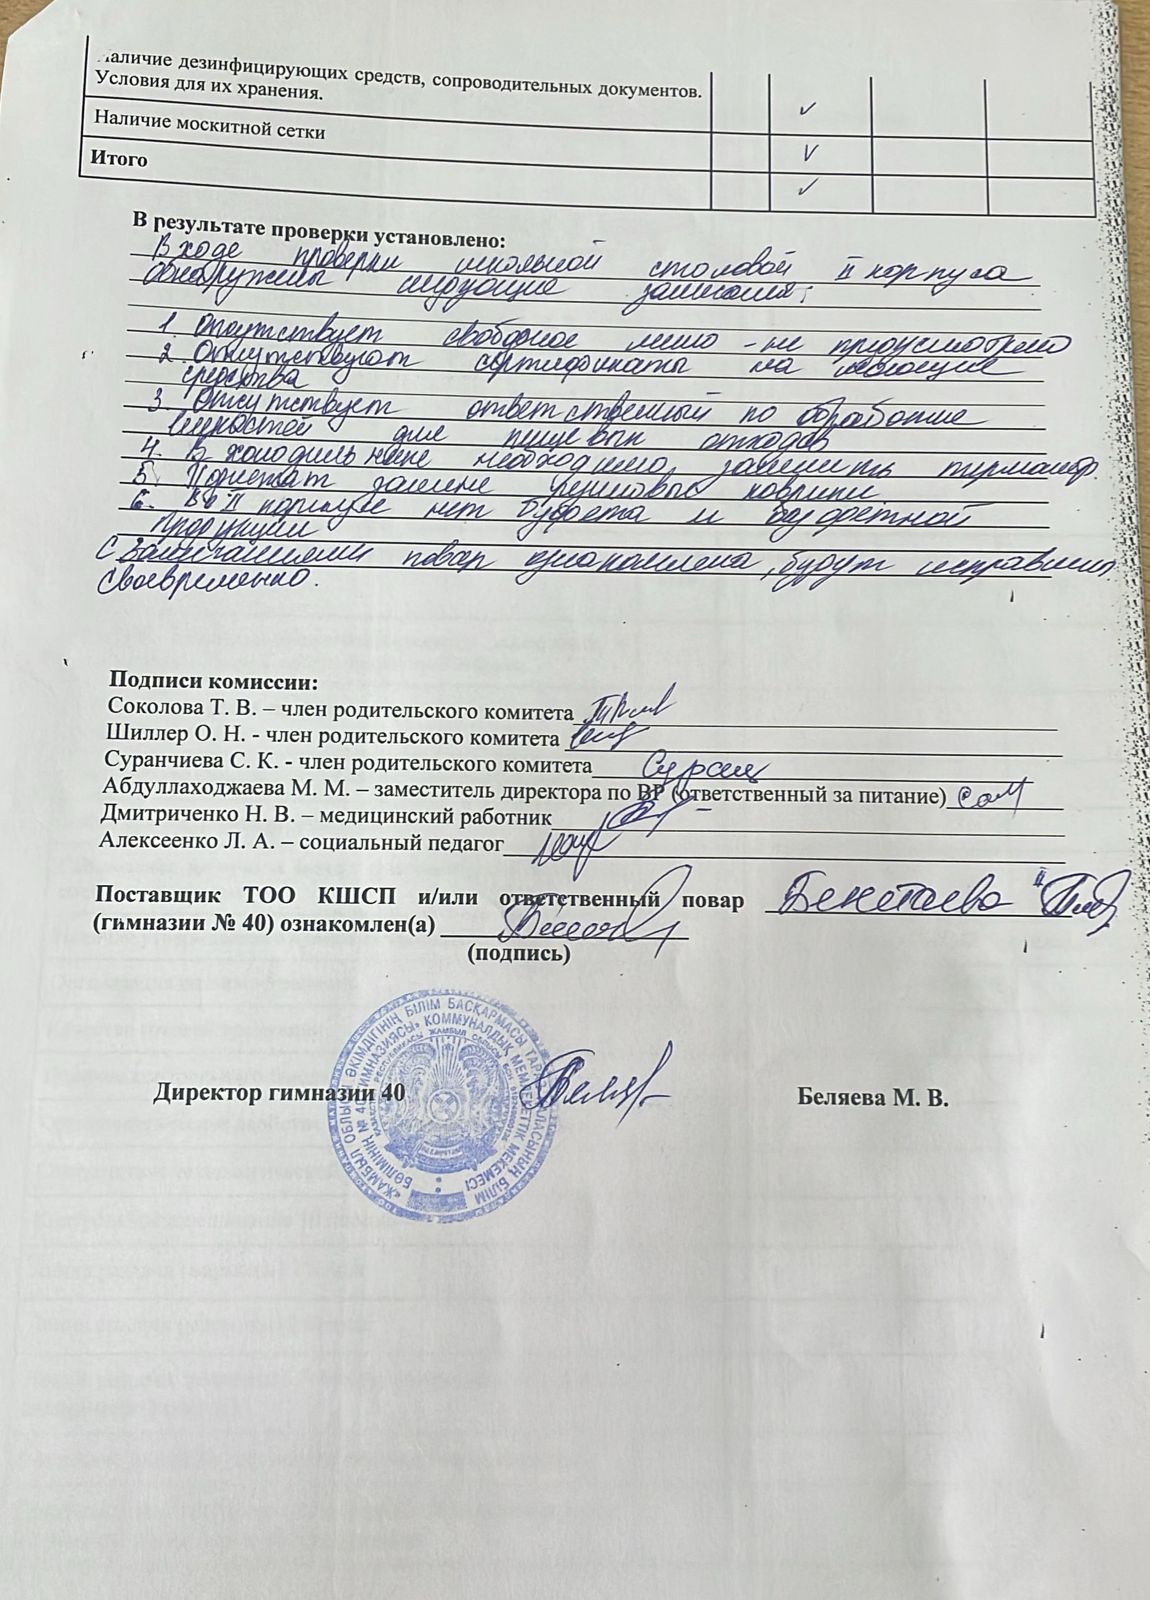 Наличие дезинфицирующих средств, сопроводительных документов.
Условия для их хранения.
Наличие москитной сетки
Итого
В результате проверки установлено:
В ходе проверки школьной столовой II корпуса
обнаружены следующие замечания:
1. Отсутствует свободное меню - не предусмотрено
2. Отсутствуют сертификаты на моющие
средства
3. Отсутствует ответственный по обработке
для пищевых отходов
4. В холодильнике необходимо заменить
5. Подлежат замене резиновые коврики
6. Во II корпусе нет буфета и буфетной
продукции
С замечаниями повар ознакомлена, будут исправлены
своевременно.
Подписи комиссии:
Соколова Т. В. – член родительского комитета
Шиллер О. Н. - член родительского комитета
Суранчиева С. К. - член родительского комитета
Абдуллаходжаева М. М. – заместитель директора по ВР (ответственный за питание)
Дмитриченко Н. В. – медицинский работник
Алексеенко Л. А. – социальный педагог
Поставщик ТОО КШСП и/или ответственный повар
(гимназии № 40) ознакомлен(а)
(подпись)
Директор гимназии 40
Беляева М. В.